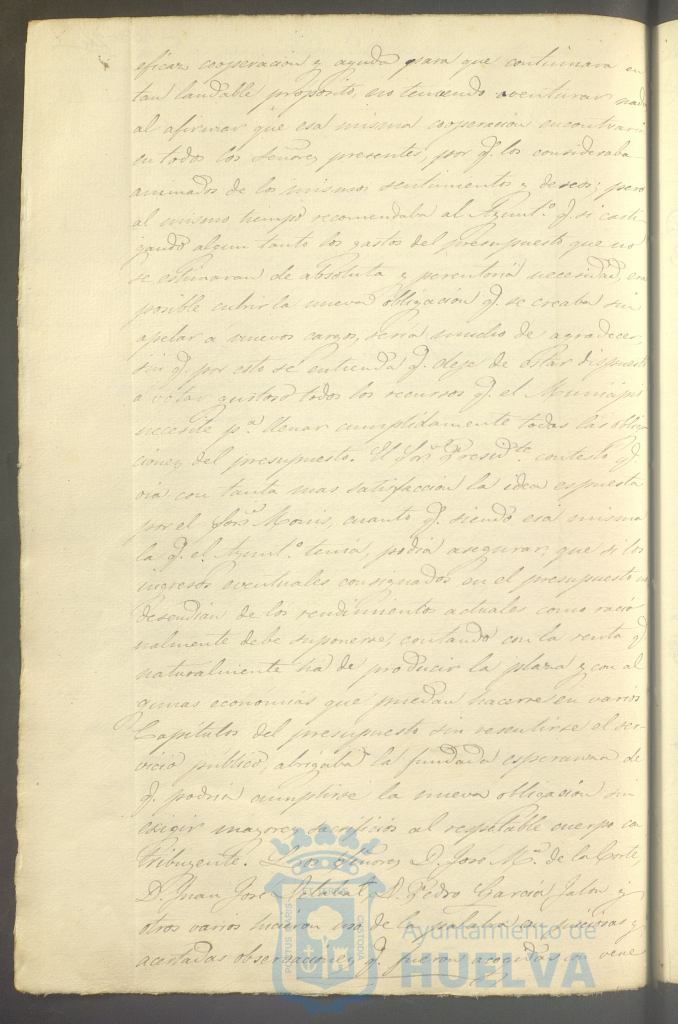 eficaz cooperacion y ayuda para que continuara en
tan laudable proposito, no temiendo aventurar nada
al afirmar que esa misma cooperacion encontraria
en todos los Señores presentes, por q.e los consideraba
animados de los mismos sentimientos y deseos; pero
al mismo tiempo recomendaba al Ayunt.o q.e si casti-
gando algun tanto los gastos del presupuesto que no
se estimaran de absoluta y perentoria necesidad, era
posible cubrir la nueva obligacion q.e se creaba sin
apelar a nuevos cargos, seria mucho de agradecer,
sin q.e por esto se entienda q.e deje de estar dispuesto
a votar gustoso todos los recursos q.e el Municipio
necesite p.a llenar cumplidamente todas las obliga
ciones del presupuesto. El Sor. Presid.te contestó q.e
oia con tanta mas satisfaccion la idea espuesta
por el Sor. Monis, cuanto q.e siendo esa misma
la q.e el Ayunt.o tenia, podia asegurar, que si los
ingresos eventuales consignados en el presupuesto no
desendian de los rendimientos actuales como racio
nalmente debe suponerse, contando con la renta q.e
naturalmente ha de producir la plaza y con al
gunas economias que puedan hacerse en varios
Capitulos del presupuesto sin resentirse el ser-
vicio publico, abrigaba la fundada esperanza de
q.e podria cumplirse la nueva obligacion sin
exigir mayores sacrificios al respetable cuerpo con
tribuyente. Los Señores D. Jose M.a de la Corte,
D. Juan Jose D. Pedro Garcia Jalon y
otros varios hicieron uso de la palabra en juiciosas y
acertadas observaciones q.e fueron acogidas con bene
PORTUS MARIS ET TERRAE CUSTODIA
Ayuntamiento de
HUELVA